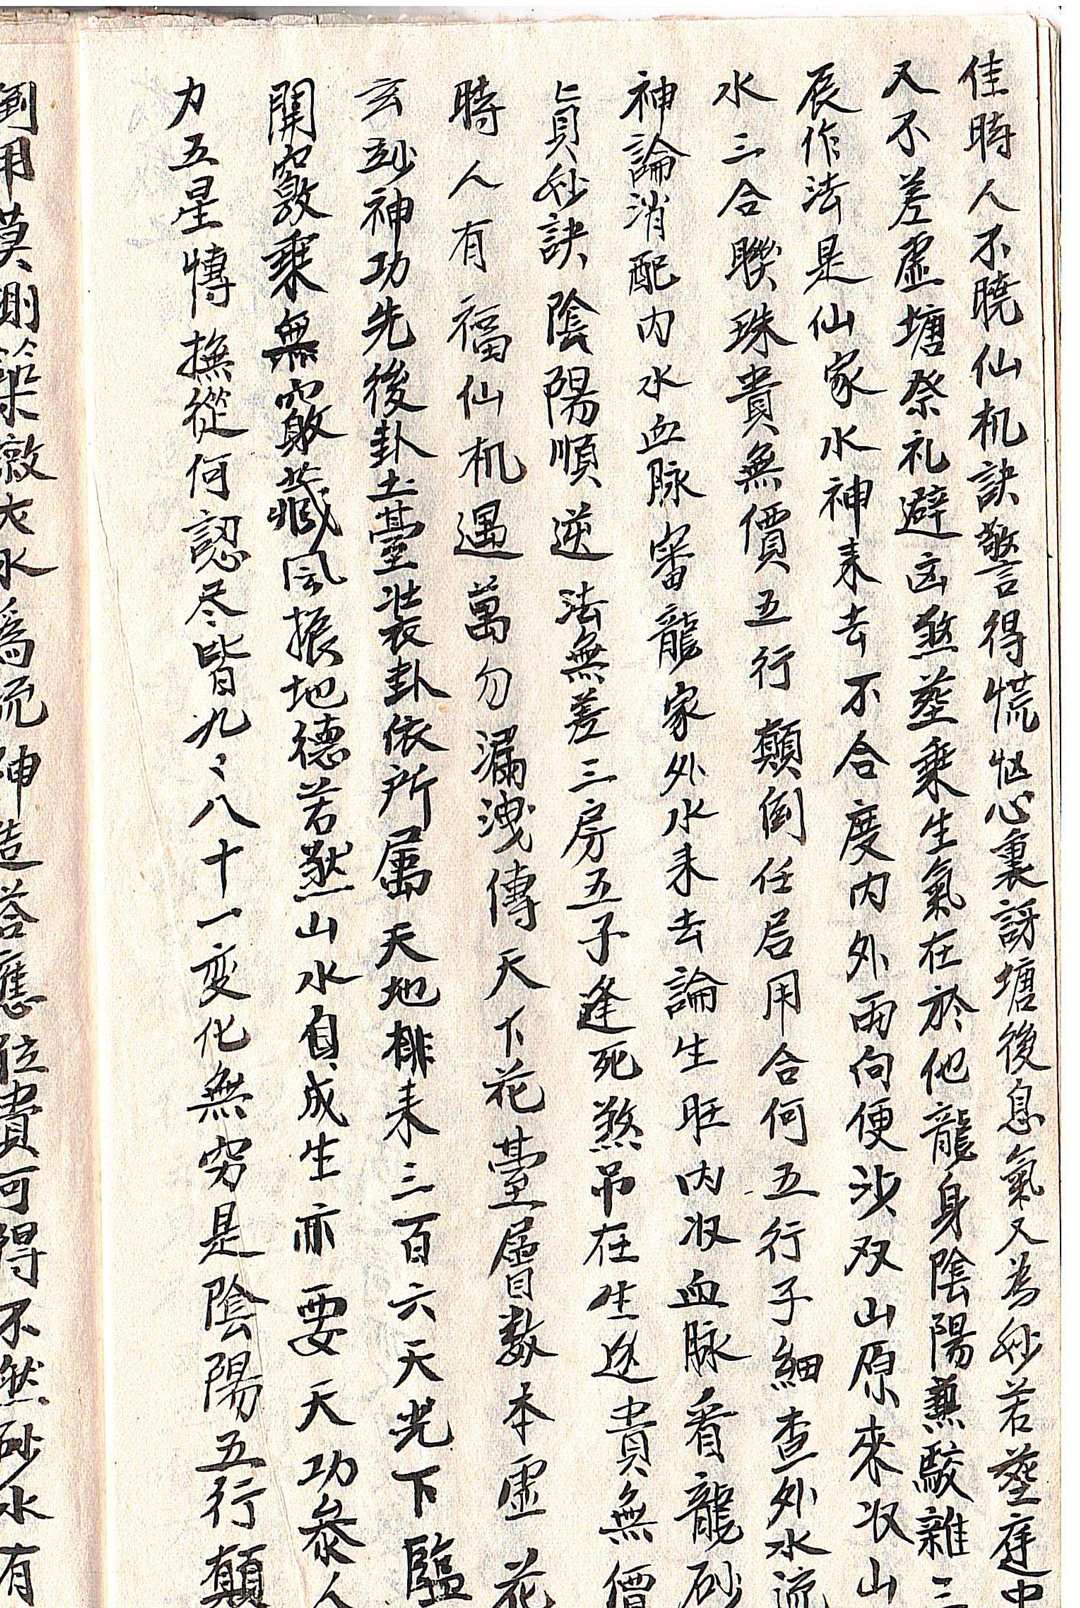 佳時人不曉仙机訣驚得慌忙心裏訝塘後息氣又為妙若葬庭中
又不差虛塘祭礼避凶煞葬乘生氣在於他龍身陰陽無駁雜三
辰作法是仙家水神耒去不合度內外両向便沙双山原來収山
水三合聯珠貴無價五行顛倒任君用合何五行子細查外水流
神論消配內水血脉審龍家外水耒去論生旺內収血脉看龍砂
貞妙訣陰陽順逆法無差三房五子逢死煞吊在生迯貴無價
時人有福仙机遇萬勿漏洩傳天下花臺層数本虛花
玄玅神功先後卦土臺裝卦依所属天地排耒三百六天光下臨
開竅乘無竅藏風振地德若愁山水自成生亦要天功叅人
力五星慱撫從何認尽皆九〻八十一变化無穷是陰陽五行顛
倒用莫測 為 神造 應位貴可得不然砂水有